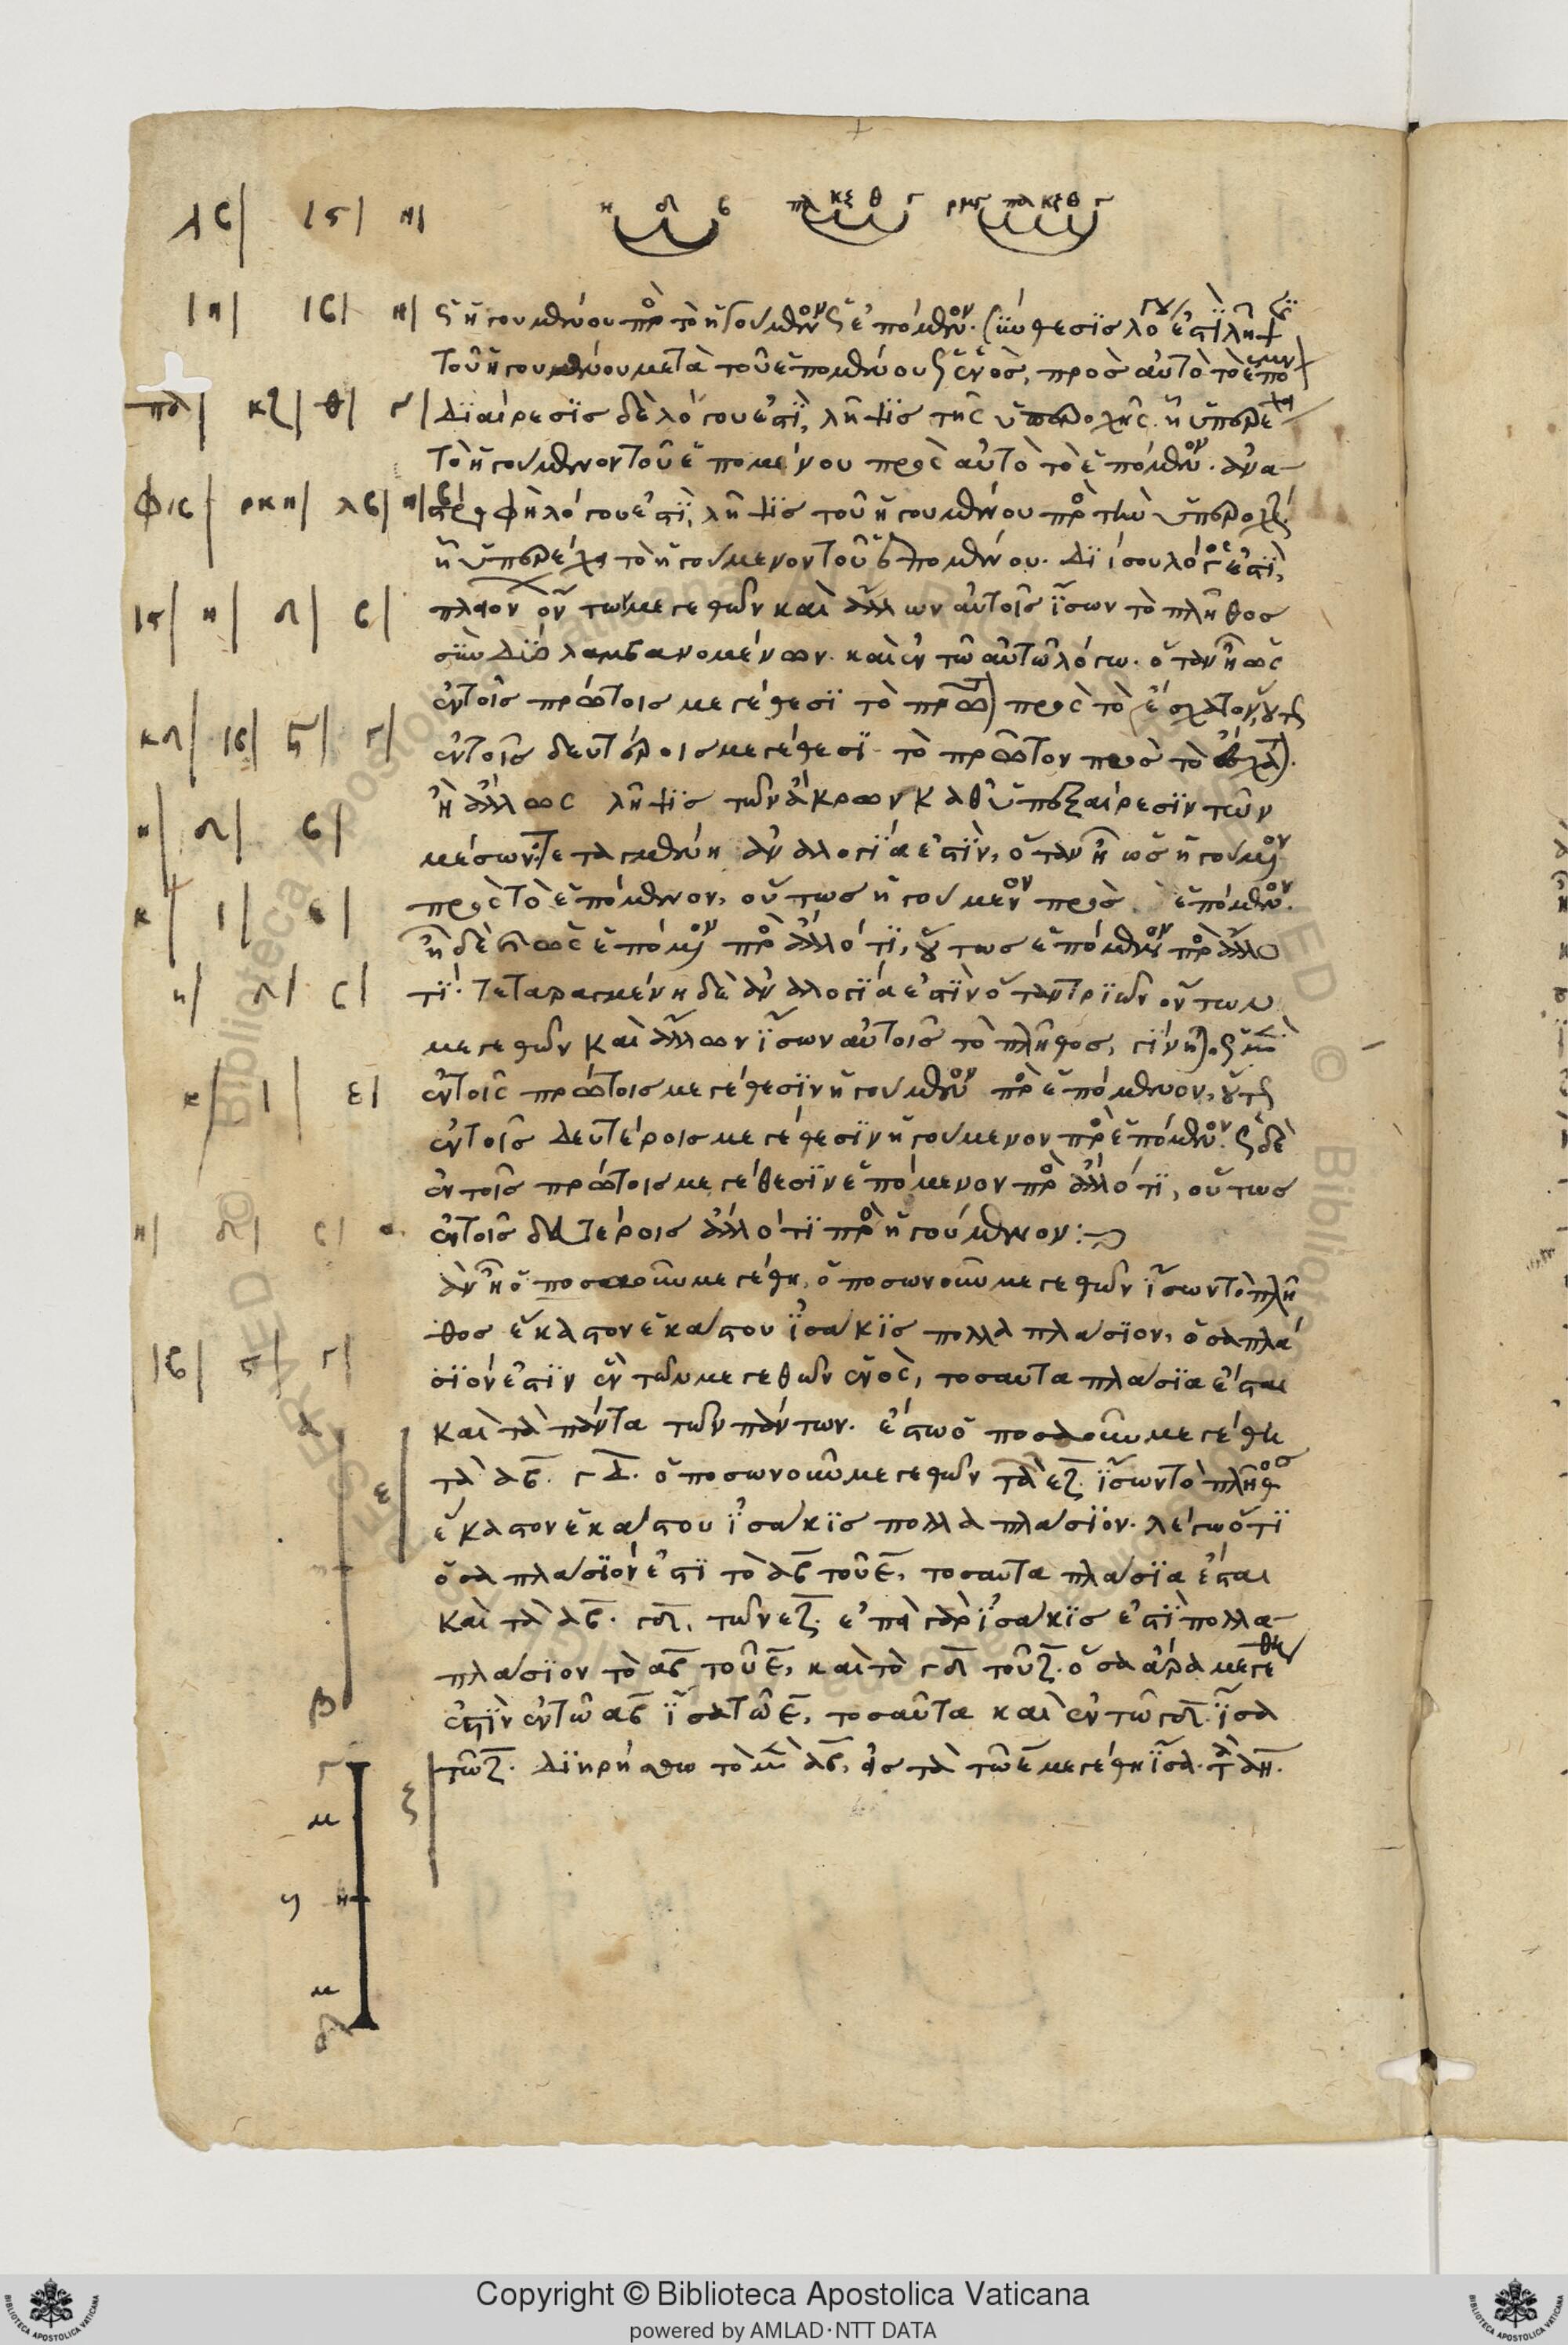 λϛ ιϛ η
η δ β πα κζ θ γ ρμγ πα κζ θ γ
ιη ιβ η
ἡγουμένου πρὸς τὸ ἡγούμενον καὶ ἑπόμενον. σύνθεσις λόγου ἐστὶ λῆψις
τοῦ ἡγουμένου μετὰ τοῦ ἑπομένου ὡς ἑνὸς, πρὸς αὐτὸ τὸ ἑπόμενον
πα κζ θ γ
διαίρεσις δὲ λόγου ἐστὶ, λῆψις τῆς ὑπεροχῆς ᾗ ὑπερέχει
τὸ ἡγούμενον τοῦ ἑπομένου πρὸς αὐτὸ τὸ ἑπόμενον. ἀνα
φιβ ρκη λβ η
στροφὴ λόγου ἐστὶ, λῆψις τοῦ ἡγουμένου πρὸς τὴν ὑπεροχὴν
ᾗ ὑπερέχει τὸ ἡγούμενον τοῦ ἑπομένου. δι ἴσου λόγος ἐστὶ,
ιϛ η δ β
πλειόνων ὄντων μεγεθῶν καὶ ἄλλων αὐτοῖς ἴσων τὸ πλῆθος
σὺν δύο λαμβανομένων. καὶ ἐν τῷ αὐτῷ λόγω. ὅταν ἦ ὡς
ἐν τοῖς πρώτοις μεγέθεσι τὸ πρῶτον πρὸς τὸ ἔσχατον, οὕτως
κδ ιβ ϛ γ
ἐν τοῖς δευτέροις μεγέθεσι τὸ πρῶτον πρὸς τὸ ἔσχατον.
ἢ ἄλλως λῆψις τῶν ἄκρων καθ ὑπεξαίρεσιν τῶν
η δ β
μέσων. τεταγμένη ἀναλογία ἐστὶν, ὅταν ἦ ὡς ἡγούμενον
πρὸς τὸ ἑπόμενον, οὕτως ἡγούμενον πρὸς ἑπόμενον.
ἦ δὲ καὶ ὡς ἑπόμενον πρὸς ἄλλό τι, οὕτως ἑπόμενον πρὸς ἄλλο
τι. τεταραγμένη δὲ ἀναλογία ἐστὶν ὅταν τριῶν ὄντων
μεγεθῶν καὶ ἄλλων ἴσων αὐτοῖς τὸ πλῆθος, γίνηται ὡς μὲν
κ ι ε
ἐν τοῖς πρώτοις μεγέθεσιν ἡγούμενον πρὸς ἑπόμενον, οὕτως
ἐν τοῖς δευτέροις μεγέθεσιν ἡγούμενον πρὸς ἑπόμενον. ὡς δὲ
ἐν τοῖς πρώτοις μεγέθεσιν ἑπόμενον πρὸς ἄλλό τι, οὕτως
η δ β
ἐν τοῖς δευτέροις ἄλλό τι πρὸς ἡγούμενον:
ἐὰν ἦ ὁποσαοῦν μεγέθη, ὁποσωνοῦν μεγεθῶν ἴσων τὸ πλῆ
θος ἕκαστον ἑκάστου ἰσάκις πολλαπλάσιον, ὁσαπλά
ιβ ϛ γ
σιόν ἐστιν ἓν τῶν μεγεθῶν ἑνὸς, τοσαυταπλάσια ἔσται
καὶ τὰ πάντα τῶν πάντων. ἔστω ὁποσαοῦν μεγέθη
τὰ αβ. γδ. ὁποσωνοῦν μεγεθῶν τὰ εζ. ἴσων τὸ πλῆθος
ἕκαστον ἑκάστου ἰσάκις πολλαπλάσιον. λέγω ὅτι
ὁσαπλάσιόν ἐστι τὸ αβ τοῦ ε, τοσαυταπλάσια ἔσται
καὶ τὰ αβ. γδ. τῶν εζ. ἐπεὶ γὰρ ἰσάκις ἐστὶ πολλα
πλάσιον τὸ αβ τοῦ ε, καὶ τὸ γδ τοῦ ζ. ὅσα ἄρα μεγέθη
ἐστὶν ἐν τῷ αβ ἴσα τῷ ε, τοσαῦτα καὶ ἐν τῷ γδ. ἴσα
τῷ ζ. διηρήσθω τὸ μὲν αβ, εἰς τὰ τῷ ε μεγέθη ἴσα. τὰ αη.
α
ε
β
γ
μ
ζ
η
δ
Copyright © Biblioteca Apostolica Vaticana
powered by AMLAD·NTT DATA